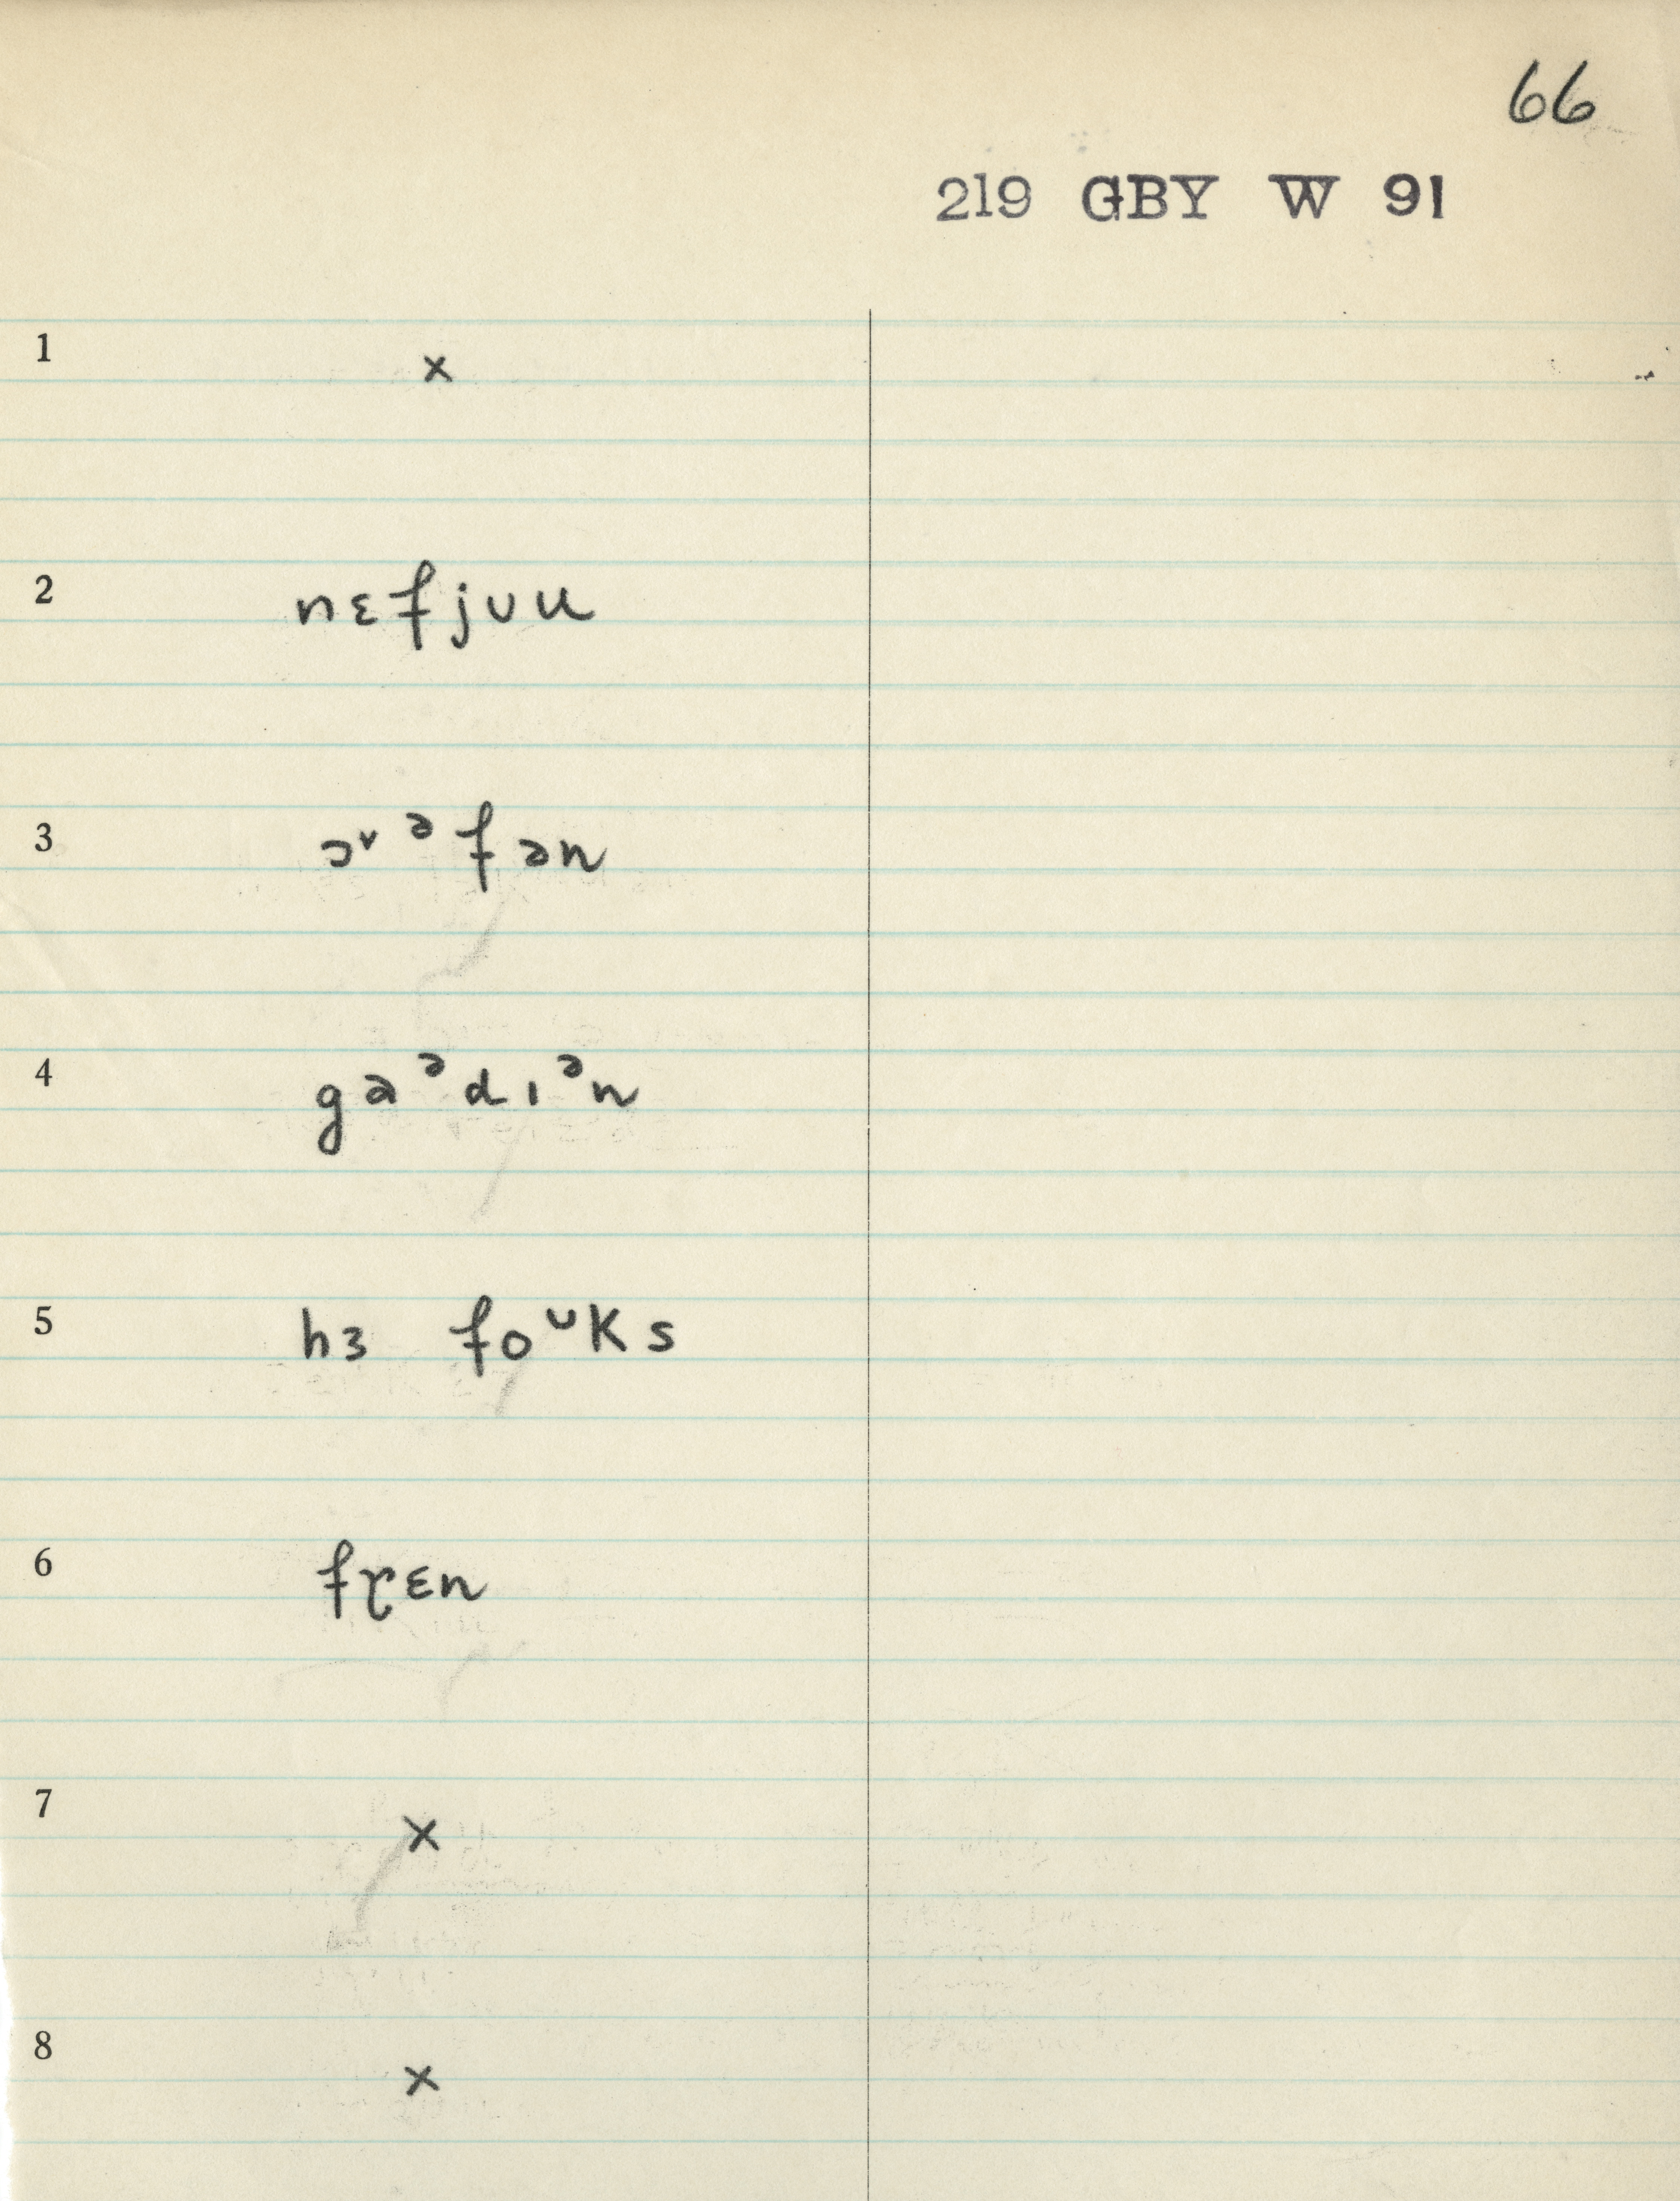 66
219 GBY W 91
1 x
2 nɛfjᴜu
3 ɔ˅ᵊfən
4 gaᵊdɪᵊn
5 hɜ foᶸks
6 fɽɛn
7 x
8 x